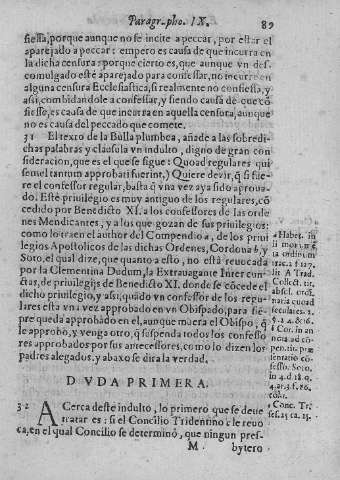 Paragrapho. IX. 89
fiessa, porque aunque no se incite a peccar, por estar el
aparejado a peccar: empero es causa de que incurra en
la dicha censura: porque cierto es, que aunque vn des-
comulgado estè aparejado para confessar, no incurre en
alguna censura Ecclesiastica, si realmente no confiessa, y
assi, combidandole a confessar, y siendo causa de que cõ
fiesse, es causa de que incurra en aquella censura, aunque
no es causa del peccado que comete.
31 El texto de la Bulla plumbea, añade a las sobredi-
chas palabras y clausula vn indulto, digno de gran con
sideracion, que es el que se sigue: Quoad regulares qui
semel tantum approbati fuerint,) Quiere devir, q̃ si fue-
re el confessor regular, basta q̃ vna vez aya sido aproua-
do. Este priuilegio es muy antiguo de los regulares, cõ
cedido por Benedicto XI. a los confessores de las orde
nes Mendicantes, y a los que gozan de sus priuilegios:
como lo traen el author del Compendio a, de los priui
legios Apostolicos de las dichas Ordenes, Cordoua b, y
Soto, el qual dize, que quanto a esto, no està reuocada
por la Clementina Dudum, la Extrauagante Inter cun-
ctas, de priuilegijs de Benedicto XI. donde se cõcede el
dicho priuilegio, y assi, quãdo vn confessor de los regu-
lares esta vna vez approbado en vn Obispado, para sie-
pre queda approbado en el, aunque muera el Obispo, q̃
le approbo, y venga otro, q̃ suspenda todos los confesso
res approbados por sus antecessores, como lo dizen los
padres alegados, y abaxo se dira la verdad.
DVDA PRIMERA.
32 ACerca deste indulto, lo primero que se deue
tratar es: si el Concilio Tridentino c le reuo
ca, en el qual Concilio se determinò, que ningun pres-
M. bytero
a Habes. in
b Cor. in
c Conc. Tri
ses. 23 ca. 15.